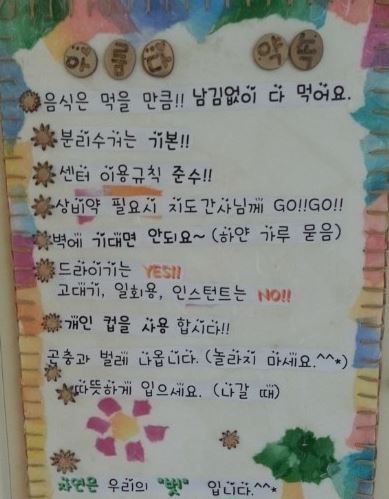 약 속
음식은 먹을 만큼!! 남김없이 다 먹어요.
분리수거는 기본!!
센터 이용규칙 준수!!
상비약 필요시 지도간사님께 GO!!GO!!
벽에 기대면 안되요~ (하얀 가루 묻음)
드라이기는 YES!!
고대기, 일회용, 인스턴트는 NO!!
개인 컵을 사용 합시다!!
곤충과 벌레 나옵니다. (놀라지 마세요.^^*)
따뜻하게 입으세요. (나갈 때)
자연은 우리의 "벗" 입니다.^^*